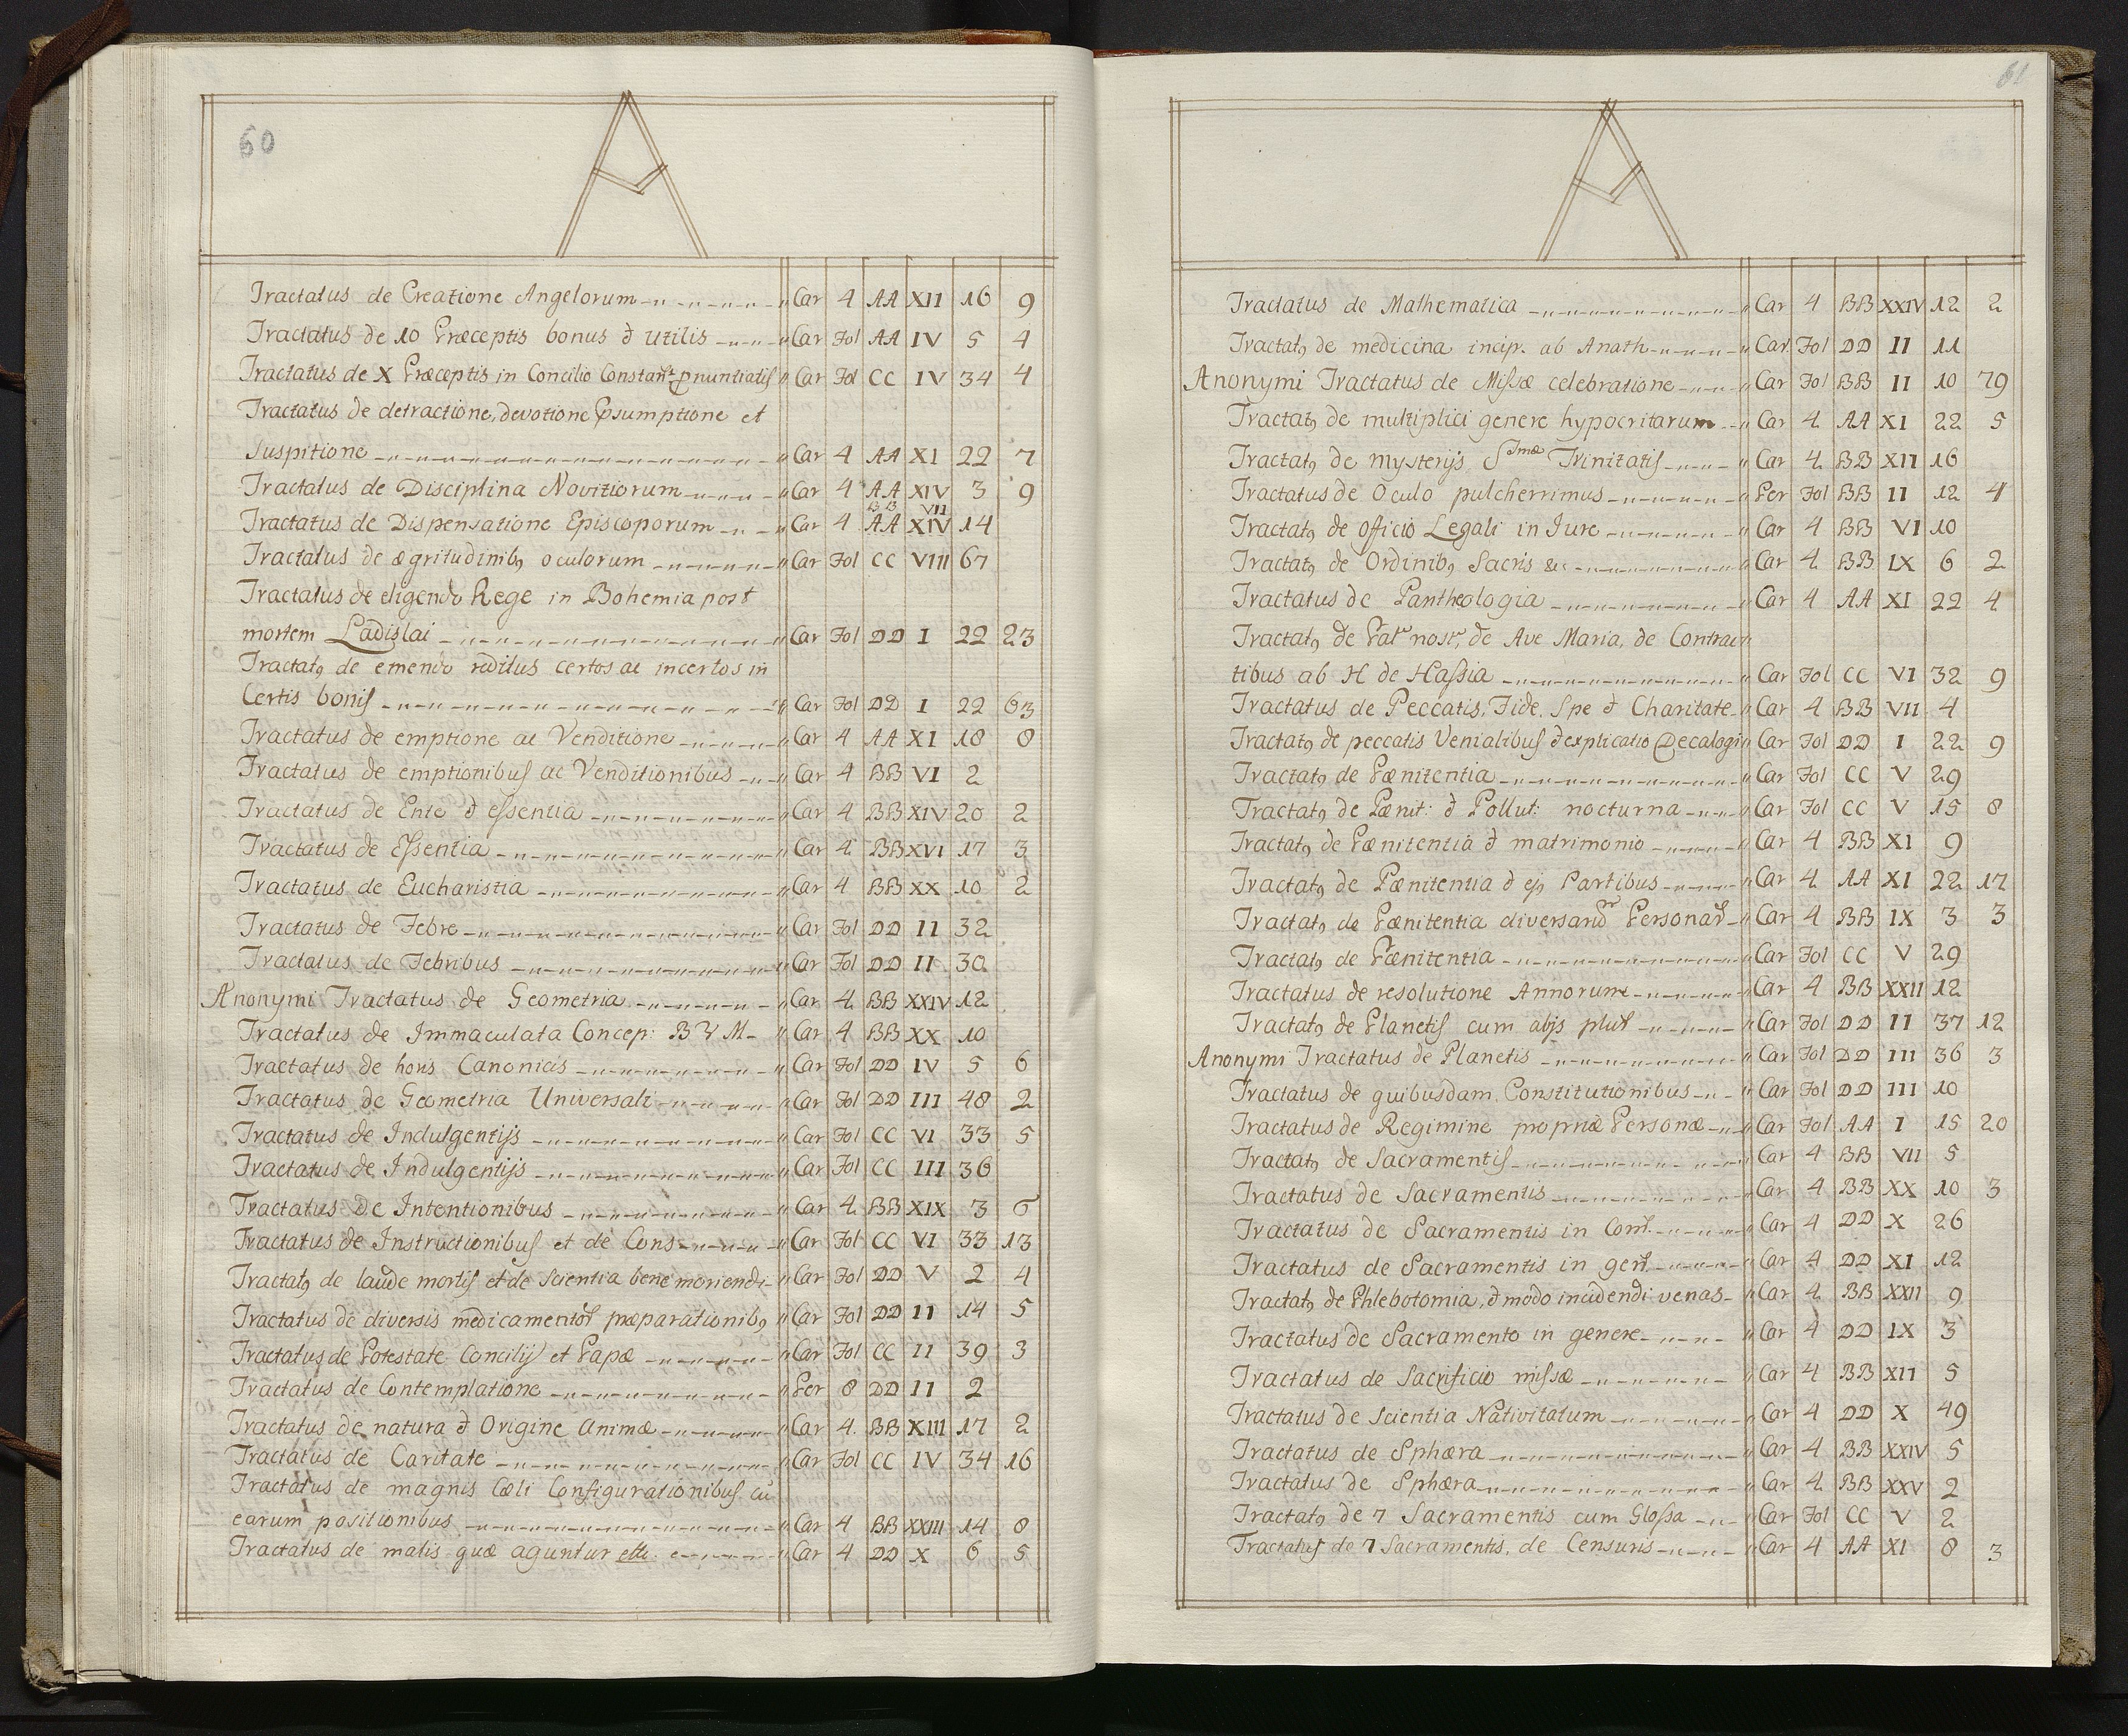 60
A
Tractatus de Creatione Angelorum Car 4 AA XII 16 9
Tractatus de 10 Præceptis bonus & utilis Car Fol AA IV 5 4
Tractatus de X Præceptis in Concilio Constant. Car Fol CC IV 34 4
Tractatus de detractione, devotione et
Suspitione Car 4 AA XI 22 7
Tractatus de Disciplina Novitiorum Car 4 AA XIV 3 9
BB VII
Tractatus de Dispensatione Episcoporum Car 4 AA XIV 14
Tractatus de ægritudinibꝰ oculorum Car Fol CC VIII 67
Tractatus de eligendo Rege in Bohemia post
mortem Ladislai Car Fol DD I 22 23
Tractatꝰ de emendo reditus certos ac incertos in
Certis bonis Car Fol DD I 22 63
Tractatus de emptione ac Venditione Car 4 AA XI 18 8
Tractatus de emptionibus ac Venditionibus Car 4 BB VI 2
Tractatus de Ente & essentia Car 4 BB XIV 20 2
Tractatus de Essentia Car 4 BB XVI 17 3
Tractatus de Eucharistia Car 4 BB XX 10 2
Tractatus de Febre Car Fol DD II 32
Tractatus de Febribus Car Fol DD II 30
Anonymi Tractatus de Geometria Car 4 BB XXIV 12
Tractatus de Immaculata Concep: B V M Car 4 BB XX 10
Tractatus de horis Canonicis Car Fol DD IV 5 6
Tractatus de Geometria Universali Car Fol DD III 48 2
Tractatus de Indulgentijs Car Fol CC VI 33 5
Tractatus de Indulgentijs Car Fol CC III 36
Tractatus de Intentionibus Car 4 BB XIX 3 6
Tractatus de Instructionibus et de Cons Car Fol CC VI 33 13
Tractatꝰ de laude mortis et de scientia bene moriendi Car Fol DD V 2 4
Tractatus de diversis medicamentoꝝ præparationibꝰ Car Fol DD II 14 5
Tractatus de Potestate Concilij et Papæ Car Fol CC II 39 3
Tractatus de Contemplatione Per 8 DD II 2
Tractatus de natura & Origine Animæ Car 4 BB XIII 17 2
Tractatus de Caritate Car Fol CC IV 34 16
Tractatus de magnis Cæli Configurationibus cū
earum positionibus Car 4 BB XXIII 14 8
Tractatus de malis quæ aguntur Car 4 DD X 6 5
61
A
Tractatus de Mathematica Car 4 BB XXIV 12 2
Tractatꝰ de medicina incip. ab Anath Car Fol DD II 11
Anonymi Tractatus de Missæ celebratione Car Fol BB II 10 79
Tractatꝰ de multiplici genere hypocritarum Car 4 AA XI 22 5
Tractatꝰ de Mysterijs Sſmæ Trinitatis Car 4 BB XII 16
Tractatus de Oculo pulcherrimus Per Fol BB II 12 4
Tractatꝰ de officio Legali in Jure Car 4 BB VI 10
Tractatꝰ de Ordinibꝰ Sacris &c Car 4 BB IX 6 2
Tractatus de Pantheologia Car 4 AA XI 22 4
Tractatꝰ de Patr nostr, de Ave Maria, de Contrac
tibus ab H de Hassia Car Fol CC VI 32 9
Tractatus de Peccatis, Fide, Spe & Charitate Car 4 BB VII 4
Tractatꝰ de peccatis Venialibus & explicatio Decalogi Car Fol DD I 22 9
Tractatꝰ de Pænitentia Car Fol CC V 29
Tractatꝰ de Pænit: & Pollut: nocturna Car Fol CC V 15 8
Tractatꝰ de Pænitentia & matrimonio Car 4 BB XI 9
Tractatꝰ de Pænitentia & ejꝰ Partibus Car 4 AA XI 22 17
Tractatꝰ de Pænitentia diversarū Personaꝝ Car 4 BB IX 3 3
Tractatꝰ de Pænitentia Car Fol CC V 29
Tractatus de resolutione Annorum Car 4 BB XXII 12
Tractatꝰ de Planetis cum alijs pluꝝ Car Fol DD II 37 12
Anonymi Tractatus de Planetis Car Fol DD III 36 3
Tractatus de quibusdam Constitutionibus Car Fol DD III 10
Tractatus de Regimine propriæ Personæ Car Fol AA I 15 20
Tractatꝰ de Sacramentis Car 4 BB VII 5
Tractatus de Sacramentis Car 4 BB XX 10 3
Tractatus de Sacramentis in Car 4 DD X 26
Tractatus de Sacramentis in Car 4 DD XI 12
Tractatꝰ de Phlebotomia, & modo incidendi venas Car 4 BB XXII 9
Tractatus de Sacramento in genere Car 4 DD IX 3
Tractatus de Sacrificio missæ Car 4 BB XII 5
Tractatus de Scientia Nativitatum Car 4 DD X 49
Tractatus de Sphæra Car 4 BB XXIV 5
Tractatus de Sphæra Car 4 BB XXV 2
Tractatꝰ de 7 Sacramentis cum Glossa Car Fol CC V 2
Tractatus de 7 Sacramentis, de Censuris Car 4 AA XI 8 3